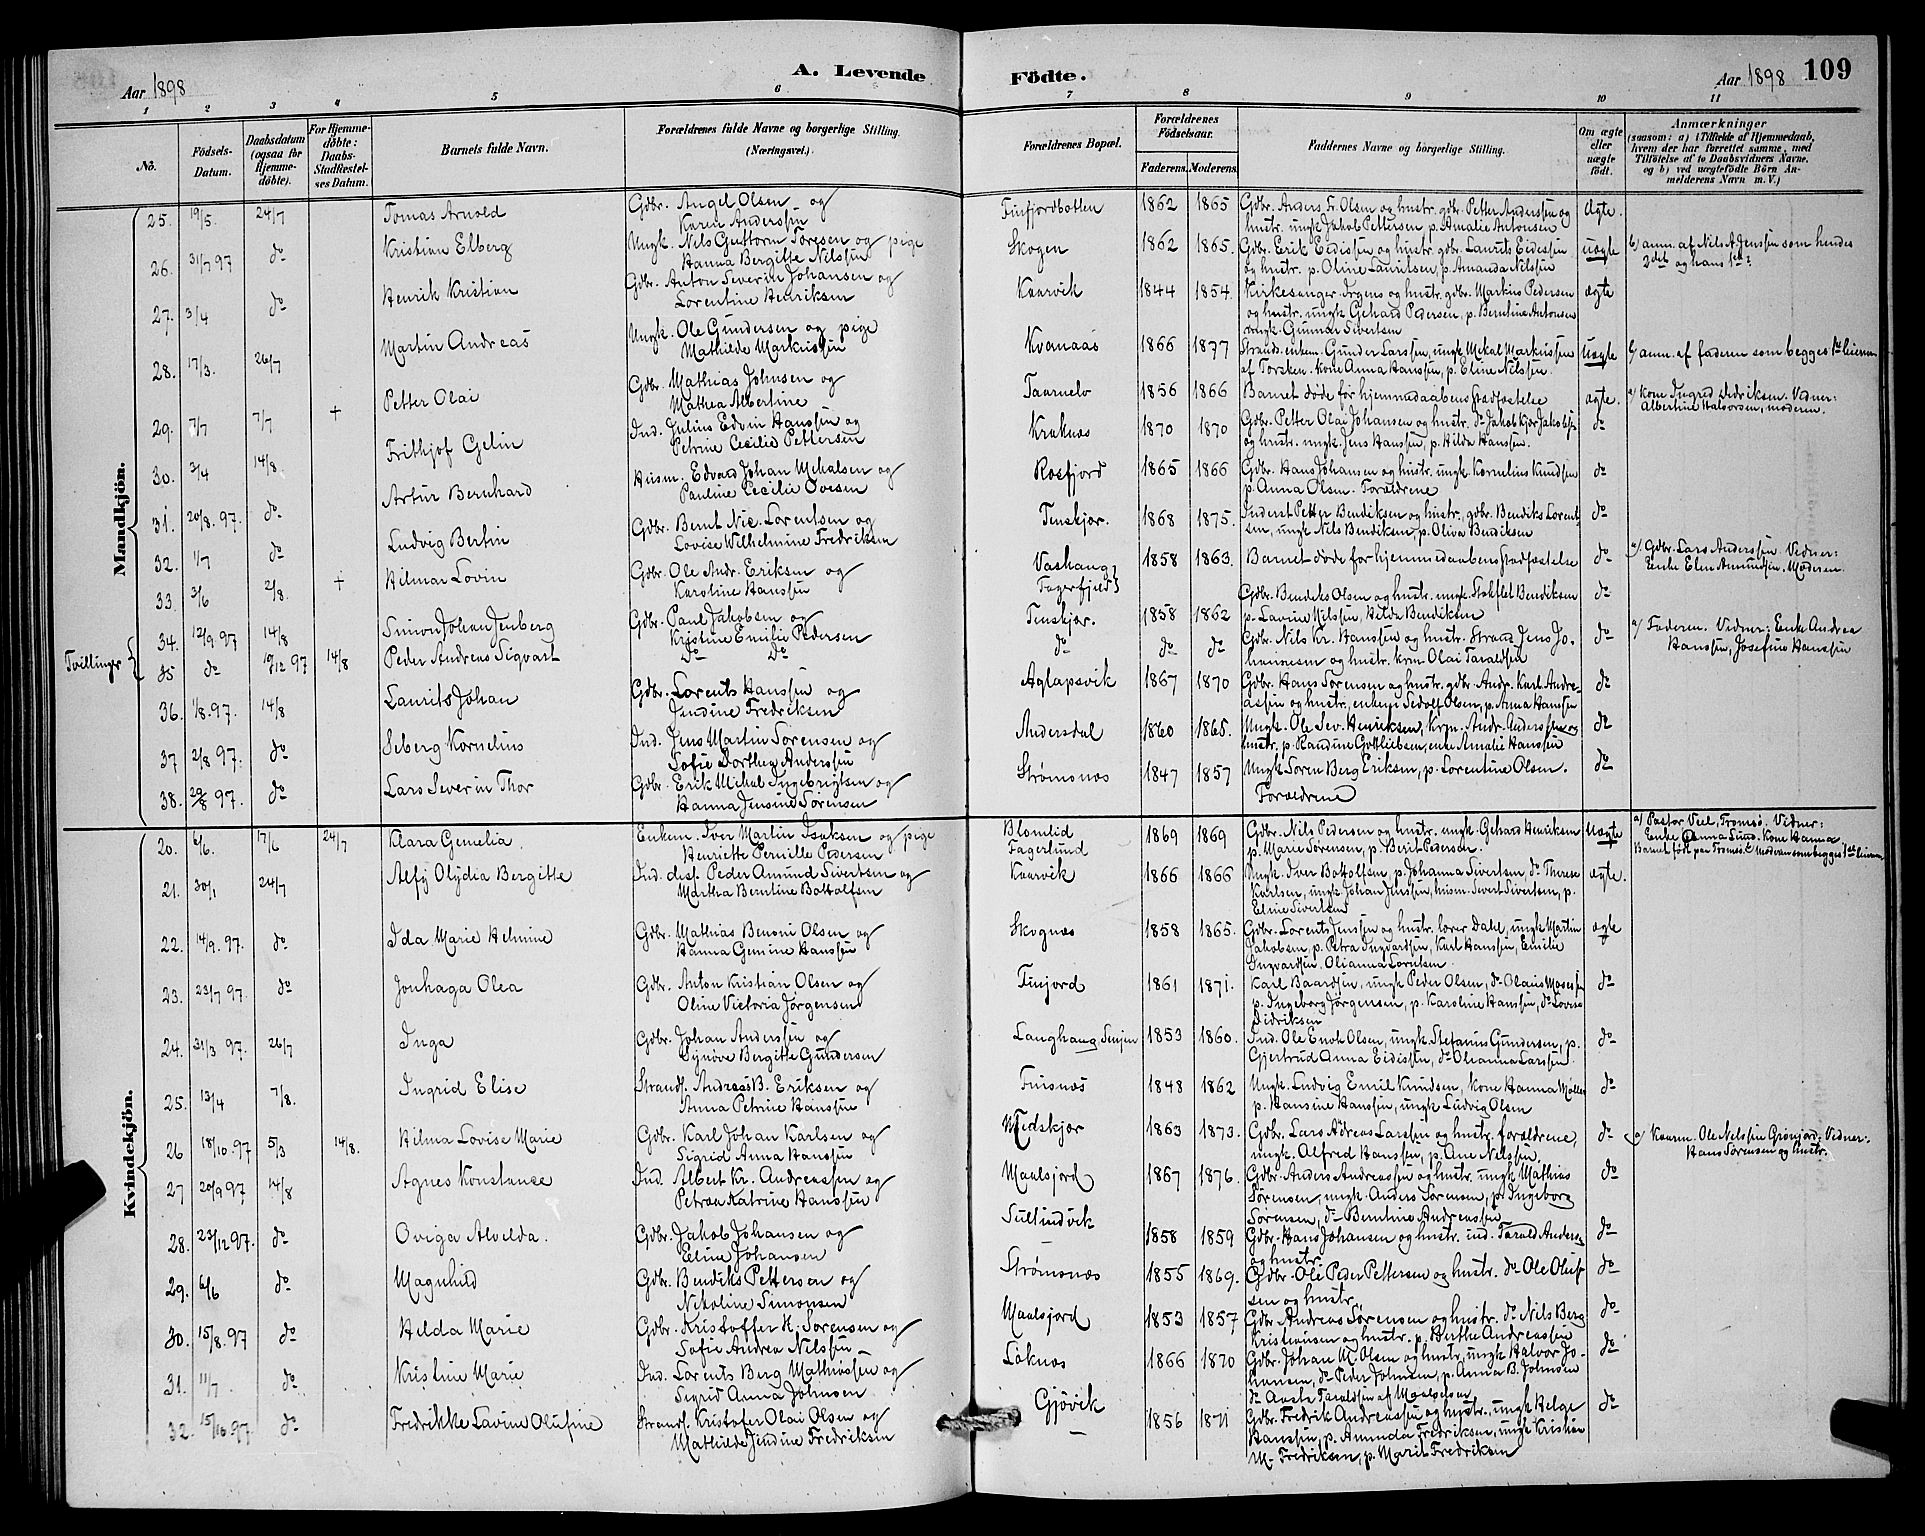 A. Levende Födte.
Aar 1898
Aar 1898 109
1 2 3 4 5 6 7 8 9 10 11
No. Födsels-Datum. Daabsdatum (ogsaa for Hjemme-döbte). For Hjemme-döbte: Daabs-Stadfestel-ses Datum. Barnets fulde Navn. Forældrenes fulde Navne og borgerlige Stilling. (Næringsvei.) Forældrenes Bopæl. Forældrenes Födselsaar. Faderens. Moderens. Faddernes Navne og borgerlige Stilling. Om ægte eller uægte født. Anmærkninger (saasom: a) i Tilfælde af Hjemmedaab, hvem der har forrettet samme, med Tilföielse af to Daabsvidners Navne, og b) ved uægtefödte Börn An-melderens Navn m. V.)
Mandkjön.
25. 19/5. 24/7 Tomas Arnold Gdbr. Angel Olsen og
Karen Anderssen Finfjordbotten 1862 1865 Gdbr. Anders F. Olsen og hustr. gdbr. Petter Anderssen og
hustr. ungk. Jakob Pettersen, p. Amalie Antonsen Ægte.
26. 31/7 97 do Kristian Elberg Ungk. Nils Guttorm Toresen og pige
Hanna Bergitte Nilssen Skogen 1862 1865. Gdbr. Erik Eidessen og hustr. gdbr. Laurits Eidessen
og hustr. p. Oline Lauritsen, p. Amanda Nilssen uægte b) anm. af Nils A. Jenssen som hendes
2det og hans 1st?
27. 3/4 do Henrik Kristian Gdbr. Anton Severin Johansen og
Lorentine Henriksen Kaarvik 1844 1854. Kirkesanger Irgens og hustr. gdbr. Markus Pedersen
og hustr. ungk. Gehard Pedersen, p. Berntine Antonsen
ungk. Gunnar Sivertsen ægte
28. 17/3. 26/7 Martin Andreas Ungk. Ole Gundersen og pige
Mathilde Markussen Kvanaas 1866 1877 Strands. enkem. Gunder Larssen, ungk. Mikal Markussen
af Torsken. Kone Anna Hanssen, p. Eline Nilssen Uægte b) anm. af faderen som begges 1ste leierm.
29. 7/7 7/7 + Petter Olai Gdbr. Mathias Johnsen og
Mathea Albertine Taarnelv 1856 1866 Barnet döde før hjemmedaabens Stadfæstelse ægte. a) Kone Ingrid Didriksen. Vidner:
Albertine Halvorsen, moderen.
30. 2/4 14/8. Frithjof Gelin Ind. Julius Edvin Hanssen og
Petrine Cecilie Pettersen Kraknes 1870 1870 Gdbr. Petter Olai Johansen og hustr. do Jakob Kjær Jakobsen
og hustr. ungk. Jens Hanssen, p. Hilda Hanssen. do
31. 20/8. 97. do Artur Bernhard Husm. Edvard Johan Mikalsen og
Pauline Cecilie Ovesen Rosfjord 1865 1866 Gdbr. Hans Johansen og hustr. ungk. Kornelius Knudsen
p. Anna Olsen. Forældrene do
32. 1/7 do Ludvig Bertin Gdbr. Bernt Nic. Lorentsen og
Lovise Wilhelmine Fredriksen Tenskjær. 1868 1875. Inderst Petter Bendiksen og hustr., gdbr. Bendiks Lorent-
sen, ungk. Nils Bendiksen, p. Oliva Bendiksen do
33. 3/6 2/8. + Hilmar Lovin Gdbr. Ole Andr. Eriksen og
Karoline Hanssen Vashaug
Fagerfjeld 1858 1863. Barnet døde før hjemmedaabens Stadfæstelse do a) Gdbr. Lars Anderssen. Vidner:
Enke Elen Amundsen, Moderen.
Tvillinger
34. 12/9 97 14/8 Simon Johan Jenberg Gdbr. Paul Jakobsen og
Kristine Emilie Pedersen Tenskjær. 1858 1862 Gdbr. Bendiks Olsen og hustr. ungk. Stokflet Bendiksen
p. Lavine Nilssen, Hilda Bendiksen do
35 do 19/12 97 14/8 Peder Andreas Sigvart Do Do do do do Gdbr. Nils Kr. Hanssen og hustr. Strand. Jens Jo-
hannesen og hustr. krm. Olai Taraldsen do a) Faderen. Vidner: Enke Andrea
Hanssen, Josefine Hanssen
36. 1/8. 97. 14/8 Laurits Johan Gdbr. Lorents Hanssen og
Jendine Fredriksen Aglapsvik 1867 1870 Gdbr. Hans Sørensen og hustr. gdbr. Andr. Karl Andre-
assen og hustr. enkem. Sedolf Olsen, p. Anna Hanssen do
37 2/8 97. do Seberg Kornelius Ind. Jens Martin Sørensen og
Sofie Dorthea Anderssen Andersdal 1860 1865. Ungk. Ole Sev. Henriksen, Krm. Andr. Anderssen og
hustr. p. Randine Gottliebsen, enke Amalie Hanssen do
38. 29/8 97. do Lars Severin Thor Gdbr. Erik Mikal Ingebrigtsen og
Hanna Jensine Sørensen Strømsnes 1847 1857 Ungk Søren Berg Eriksen, p. Lorentine Olsen.
Forældrene do
Kvindekjön.
20. 6/6. 17/6 24/7 Klara Gemelia. Enkem. Iver Martin Isaksen og pige
Henriette Pernille Pedersen Blomlid
Fagerlund 1869 1869 Gdbr. Nils Pedersen og hustr. ungk. Gehard Henriksen
p. Marie Sørensen, p. Berit Pedersen. Uægte a) Pastor Veel, Tromsø. Vidner:
Enke Anna Lund. Kone Hanna
Barnet født paa Tromsø. Moderen som begges 1ste leierm.
21. 30/1 24/7 Alfy Olydia Bergitte Ind. disp. Peder Amund Sivertsen og
Martha Berntine Bottolfsen Kaarvik 1866 1866 Ungk. Iver Bottolfsen, p. Johanna Sivertsen, do Therese
Karlsen, ungk. Johan Jenssen, husm. Sivert Sivertsen, p.
Eline Sivertsen ægte.
22. 14/9. 97. do Ida Marie Helmine Gdbr. Mathias Benoni Olsen og
Hanna Gemine Hanssen Skognes 1858 1865. Gdbr. Lorents Jenssen og hustr. lærer Dahl, ungk Martin
Jakobsen, p. Petra Ingvardsen, Karl Hanssen, Emilie
Ingvardsen, Olianna Larntsen ægte
23. 23/7 97. do Jonhaga Olea Gdbr. Anton Kristian Olsen og
Oline Victoria Jørgensen Finjord 1861 1871. Karl Baardsen, ungk Peder Olsen, do Olaus Mosessen
p. Ingeborg Jørgensen, p. Karoline Hanssen, do Lovise
Didriksen do
24. 31/3 97. 26/7 Inga Gdbr. Johan Anderssen og
Synøve Bergitte Gundersen Langhaug Senjen 1853 1860. Ind. Ole Enok Olsen, ungk. Stefanus Gundersen, p.
Gjertrud Anna Eidissen, do Olianna Larssen do
25. 13/4 7/8. Ingrid Elise Strands. Andreas B. Eriksen og
Anna Petrine Hanssen Finsnes 1848 1862 Ungk. Ludvig Emil Knudsen, kone Hanna Møller
p. Hansine Hanssen, ungk Ludvig Olsen do
26 18/10. 97 5/3 14/8. Hilma Lovise Marie Gdbr. Karl Johan Karlsen og
Sigrid Anna Hanssen Medskjær 1863 1873. Gdbr. Lars Adreas Larssen og hustr. forældrene,
ungk. Alfred Hanssen, p. Ane Nelssen. do a) Kaarm. Ole Nelssen Grønjord: Vidner:
Hans Sørensen og hustr.
27 20/9 97 14/8 Agnes Konstanse Ind. Albert Kr. Andreassen og
Petrea Katrine Hanssen Maalsjord 1867 1876. Gdbr. Anders Andreassen og hustr. ungk Mathias
Sørensen, ungk Anders Sørensen, p. Ingeborg
Sørensen, do Berntine Andreassen do
28. 23/12 97. do Oviga Alvelda. Gdbr. Jakob Johansen og
Eline Johansen Sultindvik 1858 1859 Gdbr. Hans Johansen og hustr. ind. Tarald Anders.
og hustr. do
29. 6/6 do Magnhild Gdbr. Bendiks Pettersen og
Nikoline Simonsen Strømsnes 1855 1869. Gdbr. Ole Peder Pettersen og hustr. do Ole Oluf-
sen og hustr. do
30. 15/8. 97 do Hilda Marie Gdbr. Kristoffer H. Sørensen og
Sofie Andrea Nilssen Maalsjord 1853 1857 Gdbr. Andreas Sørensen og hustr. do Nils Berg
Kristensen og hustr. p. Berthe Andreassen do
31. 11/7. do Kristine Marie Ind. Lorents Berg Mathiassen og
Sigrid Anna Johnsen Løknes 1866 1870 Gdbr. Johan M. Olsen og hustr, ungk Halvor Jo-
hansen, do Peder Johnsen, p. Anna B. Johnsen
do Aaste Taraldsen af Maalselven do
32. 15/10 97. do Fredrikke Lavine Olufine Strands. Kristofer Olai Olsen og
Mathilde Jendine Fredriksen Gjøvik 1856 1871 Gdbr. Fredrik Andreassen og hustr. ungk Helge
Hanssen, p. Amunda Fredriksen, ungk Kristian
M. Fredriksen, p. Marit Fredriksen do